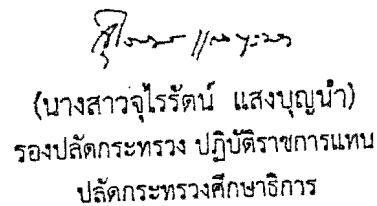 (นางสาวจุไรรัตน์ แสงบุญนำ)
รองปลัดกระทรวง ปฏิบัติราชการแทน
ปลัดกระทรวงศึกษาธิการ